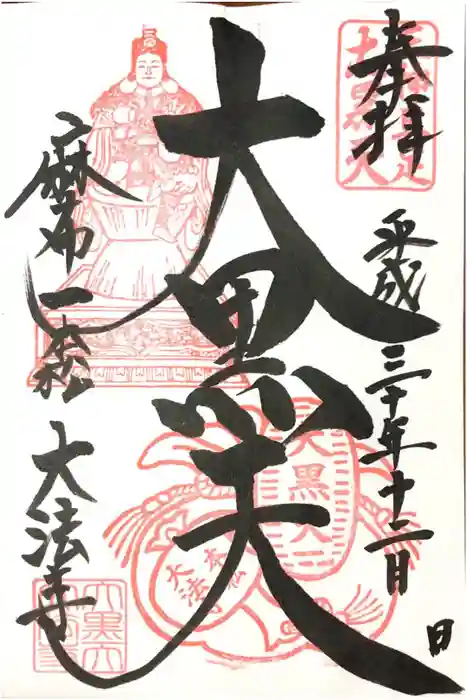 奉拝
平成三十年十二月 日
大黒天
麻布一本松
大法寺
大黒天